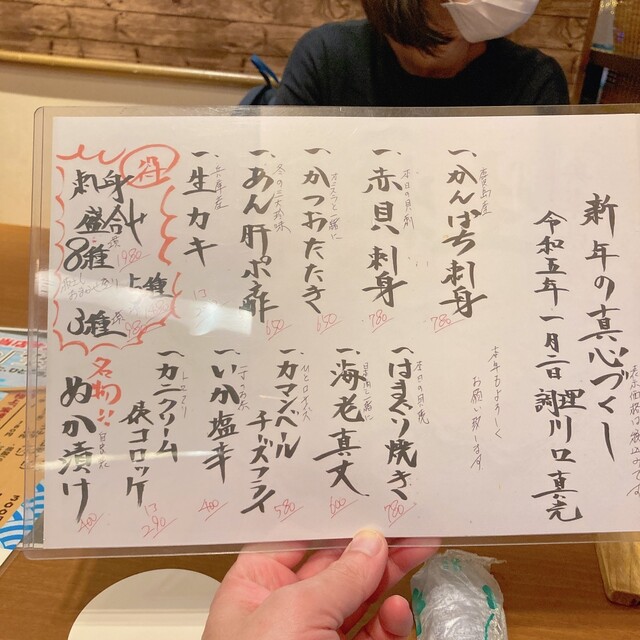 新年の真心づくし
令和五年 一月二日 調理 川口 真克
本年もよろしく
お願い致します
鹿島産
一、かんぱち刺身
780
本日の貝刺
一、赤貝刺身
780
一、かつおたたき
680
冬の三大珍味
一、あん肝ポン酢
680
兵庫産
一、生カキ
得
刺身
盛合せ
8種
1980
5種
3種
本日の貝焼
一、はまぐり焼き
780
一、海老真丈
600
ひと口サイズ
一、カマンベール
チーズフライ
580
一、いか塩辛
400
一、カニクリーム
俵コロッケ
1コ
290
名物!!
ぬか漬け
400